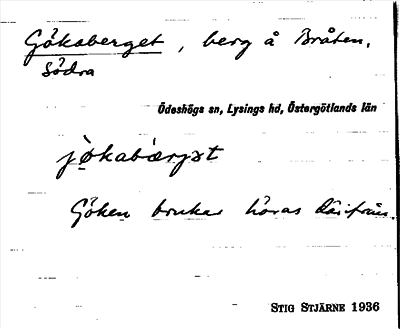 Gökaberget, berg å Bråten,
Södra
Ödeshögs sn, Lysings hd, Östergötlands län
jö̀kabærjət
Göken brukar höras därifrån.
STIG STJÄRNE 1936